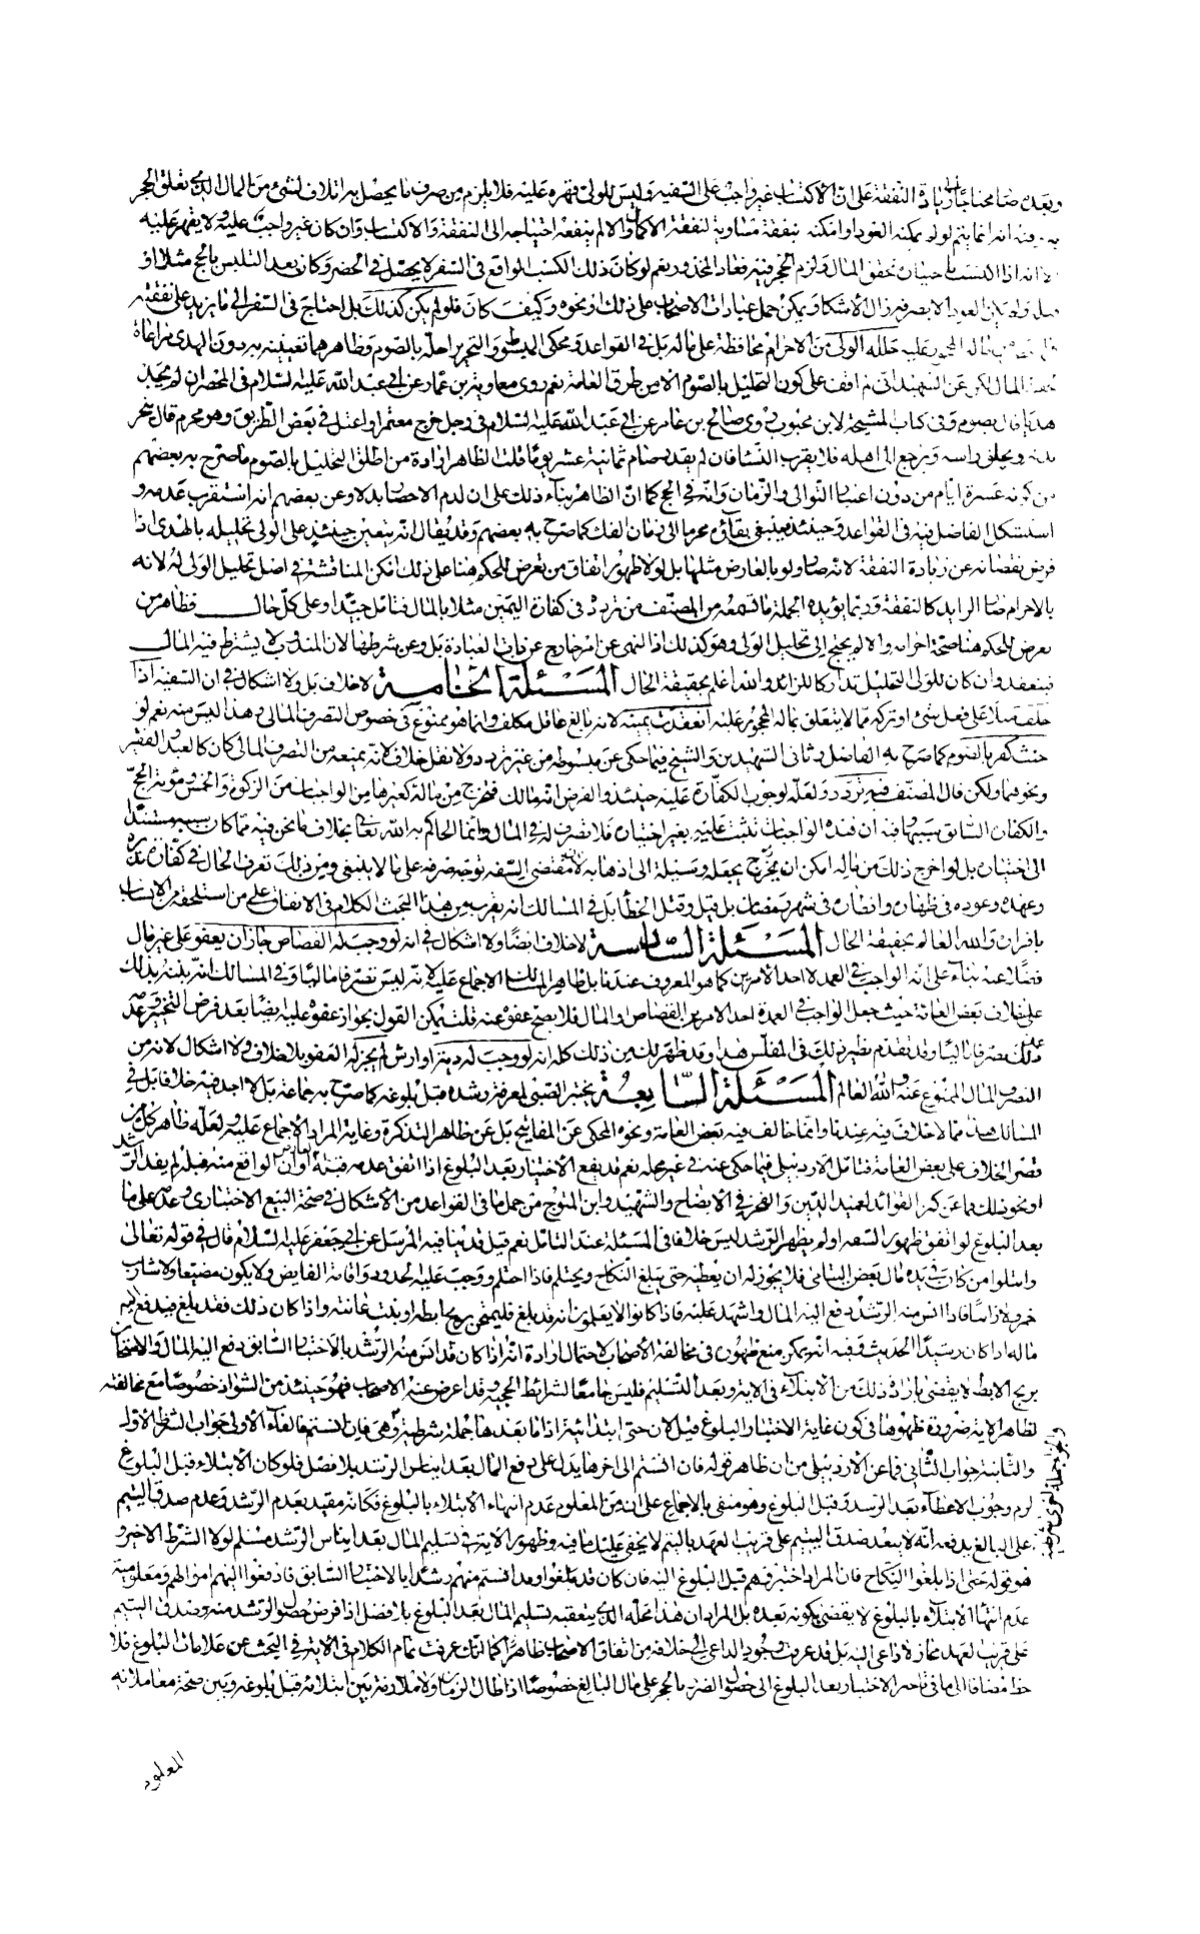 وبعده صار محتاجا الى زيادة النفقة على ان الاكتساب غير واجب على السفيه وليس للولي قهره عليه فلا يلزم من صرف ما يحصل به اتلاف لشئ من المال الذي تعلق الحجر
به وفيه انه انما يتم لو لم يمكنه العود او امكنه بنفقة مساوية لنفقة الاكمال والا لم ينفعه احتياجه الى النفقة والاكتساب وان كان غير واجب عليه ولا يقهر عليه
الا انه اذا اكتسب باختيان تحقق المال ولزم الحجر فيه فعاد المحذور نعم لو كان ذلك الكسب الواقع في السفر لا يحصل في الحضر وكان بعد التلبس بالحج مثلا او
العود الا بصرفه زال الاشكال ويمكن حمل عبارات الاصحاب على ذلك او نحوه وكيف كان فلو لم يكن كذلك بل احتاج في السفر الى ما يزيد على نفقته
عليه حلله الولي من الاحرام محافظة على ماله بل في القواعد ومحكي المبسوط والتحرير احله بالصوم وظاهرهما تعيينه به دون الهدي مراعاة
المال لكن عن الشهيد اني لم اقف على كون التحليل بالصوم الا من طرق العامة نعم روى معاوية بن عمار عن ابي عبد الله عليه السلام في المحصر ان لم يجد
هديا قال يصوم وفي كتاب المشيخة لابن محبوب روى صالح بن عامر عن ابي عبد الله عليه السلام في رجل خرج معتمرا واعتل في بعض الطريق وهو محرم قال ينحر
بدنة ويحلق راسه ويرجع الى اهله فلا يقرب النساء فان لم يقدر صام ثمانية عشر يوما قلت الظاهر ارادة من اطلق التحليل بالصوم ما صرح به بعضهم
من كونه عشرة ايام من دون اعتبار التوالي والزمان وانه في الحج كما ان الظاهر بناء ذلك على ان لدم الاحصار بدلا وعن بعضهم انه استقرب عدمه و
استشكل الفاضل فيه في القواعد وحينئذ ينبغي بقاؤه محرما الى زمان الفك كما صرح به بعضهم وقد يقال انه يتعين حينئذ على الولي تحليله بالهدي اذا
فرض نقصانه عن زيادة النفقة لانه صار ولو بالعارض مثلها بل لولا ظهور اتفاق من تعرض للحكم هنا على ذلك امكن المناقشة في اصل تحليل الولي له لانه
بالاحرام صار الزايد كالنفقة وربما يؤيده في الجملة ما تسمعه من المصنف من تردد في كفارة اليمين مثلا بالمال فتامل جيدا وعلى كل حال فظاهر من
تعرض للحكم هنا صحة احرامه والا لم يحتج الى تحليل الولي وهو كذلك اذ النهي عن امر خارج عن ذات العبادة بل وعن شرطها لان المندوب لا يشترط فيه المال
فينعقد وان كان للولي التحليل تداركا للزائد والله اعلم بحقيقة الحال المسئلة الخامسة لا خلاف بل ولا اشكال في ان السفيه اذا
حلف مثلا على فعل شئ او تركه مما لا يتعلق بماله المحجور عليه انعقدت يمينه لانه بالغ عاقل مكلف وانما هو ممنوع في خصوص التصرف المالي وهذا ليس منه نعم لو
حنث كفر بالصوم كما صرح به الفاضل وثاني الشهيدين والشيخ فيما حكي عن مبسوطه من غير تردد ولا نقل خلاف لانه بمنعه من التصرف المالي كان كالعبد والفقير
ونحوهما ولكن قال المصنف فيه تردد ولعله لوجوب الكفارة عليه حينئذ والفرض انه مالك فتخرج من ماله كغيرها من الواجبات من الزكوة والخمس ومؤنة الحج
والكفارة السابق سببها وفيه ان هذه الواجبات تثبت عليه بغير اختيار فلا تصرف له في المال وانما الحاكم به الله تعالى بخلاف ما نحن فيه مما كان سببه مستندا
الى اختياره بل لو اخرج ذلك من ماله امكن ان يجعله وسيلة الى اذهابه لان مقتضى السفه توجه صرفه على ما لا ينبغي ومن ذلك تعرف الحال في كفارة نذره
وعهده وعوده في ظهاره وافطاره في شهر رمضان بل قيل وقتل الخطأ بل في المسالك انه يقرب من هذا البحث الكلام في الانفاق على من استلحقه من الانساب
باقراره والله العالم بحقيقة الحال المسئلة السادسة لا خلاف ايضا ولا اشكال في انه لو وجب له القصاص جاز ان يعفو على غير مال
فضلا عنه بناء على انه الواجب في العمد لا احد الامرين كما هو المعروف عندنا بل ظاهر المسالك الاجماع عليه لانه ليس تصرفا ماليا وفي المسالك انه نبه بذلك
على خلاف بعض العامة حيث جعل الواجب في العمد احد الامرين القصاص او المال فلا يصح عفوه عنه قلت يمكن القول بجواز عفوه عليه ايضا بعد فرض التخيير وعد
ذلك تصرفا ماليا وقد تقدم نظير ذلك في المفلس هذا وقد ظهر لك من ذلك كله انه لو وجب له دية او ارش لم يجز له العفو بلا خلاف ولا اشكال لانه من
التصرف المالي الممنوع عنه والله العالم المسئلة السابعة يختبر الصبي لمعرفة رشده قبل بلوغه كما صرح به جماعة بل لا اجد فيه خلافا بل في
المسالك هذا مما لا خلاف فيه عندنا وانما خالف فيه بعض العامة ونحوه المحكي عن المفاتيح بل عن ظاهر التذكرة وغاية المراد الاجماع عليه ولعله ظاهر كل من
قصر الخلاف على بعض العامة فتامل الاردبيلي فيما حكي عنه في غير محله نعم قد يقع الاختبار بعد البلوغ اذا اتفق عدمه قبله او ان الواقع منه قبله لم يفد الرشد
او نحو ذلك فما عن كنز الفوائد لعميد الدين والفخر في الايضاح والشهيد وابن المتوج من حمل ما في القواعد من الاشكال في صحة البيع الاختباري وعدمه على ما
بعد البلوغ لو اتفق ظهور السفه او لم يظهر الرشد ليس خلافا في المسئلة عند التامل نعم قيل قد ينافيه المرسل عن ابي جعفر عليه السلام قال في قوله تعالى
وابتلوا من كان في يده مال بعض اليتامى فلا يجوز له ان يعطيه حتى يبلغ النكاح ويحتلم فاذا احتلم ووجب عليه الحدود واقامة الفرايض ولا يكون مضيعا ولا شارب
خمر ولا زانيا فاذا انس منه الرشد دفع اليه المال واشهد عليه فاذا كانوا لا يعلمون انه قد بلغ فليمتحن بريح ابطه او نبت عانته واذا كان ذلك فقد بلغ فيدفع اليه
ماله اذا كان رشيدا الحديث وفيه انه يمكن منع ظهوره في مخالفة الاصحاب لاحتمال ارادة انه اذا كان قد انس منه الرشد بالاختبار السابق دفع اليه المال والامتحان
بريح الابط لا يقضي بارادة ذلك من الابتلاء في الاية وبعد التسليم فليس جامعا لشرائط الحجية وقد اعرض عنه الاصحاب فهو حينئذ من الشواذ خصوصا مع مخالفته
لظاهر الاية ضرورة ظهورها في كون غاية الاختبار البلوغ قيل لان حتى ابتدائية اذ ما بعدها جملة شرطية وهي فان انستم فالفاء الاولى جواب الشرط الاول
والثانية جواب الثاني فما عن الاردبيلي من ان ظاهر قوله فان انستم الى اخرها يدل على دفع المال بعد ايناس الرشد بلا فصل فلو كان الابتلاء قبل البلوغ
لزم وجوب الاعطاء بعد الرشد وقبل البلوغ وهو منفي بالاجماع على ان من المعلوم عدم انتهاء الابتلاء بالبلوغ فكانه مقيد بعدم الرشد وعدم صدق اليتيم
على البالغ يدفعه انه لا يبعد صدق اليتيم على قريب العهد باليتم لا يخفى عليك ما فيه وظهور الاية في تسليم المال بعد ايناس الرشد مسلم لولا الشرط الاخير و
هو قوله حتى اذا بلغوا النكاح فان المراد اختبروهم قبل البلوغ اليه فان كان قد بلغوا وقد انستم منهم رشدا بالاختبار السابق فادفعوا اليهم اموالهم ومعلومية
عدم انتهاء الابتلاء بالبلوغ لا يقضي بكونه بعده بل المراد ان هذا محله الذي يتعقبه تسليم المال بعد البلوغ بلا فصل اذا فرض حصول الرشد منه وصدق اليتيم
على قريب العهد مجاز لا داعي اليه بل قد عرفت وجود الداعي الى خلافه من اتفاق الاصحاب ظاهرا كما انك عرفت تمام الكلام في الاية في البحث عن علامات البلوغ فلا
حظ مضافا الى ما في تاخير الاختبار بعد البلوغ الى حصول الضرر بالحجر على مال البالغ خصوصا اذا طال الزمان ولا ملازمة بين ابتلائه قبل بلوغه وبين صحة معاملاته